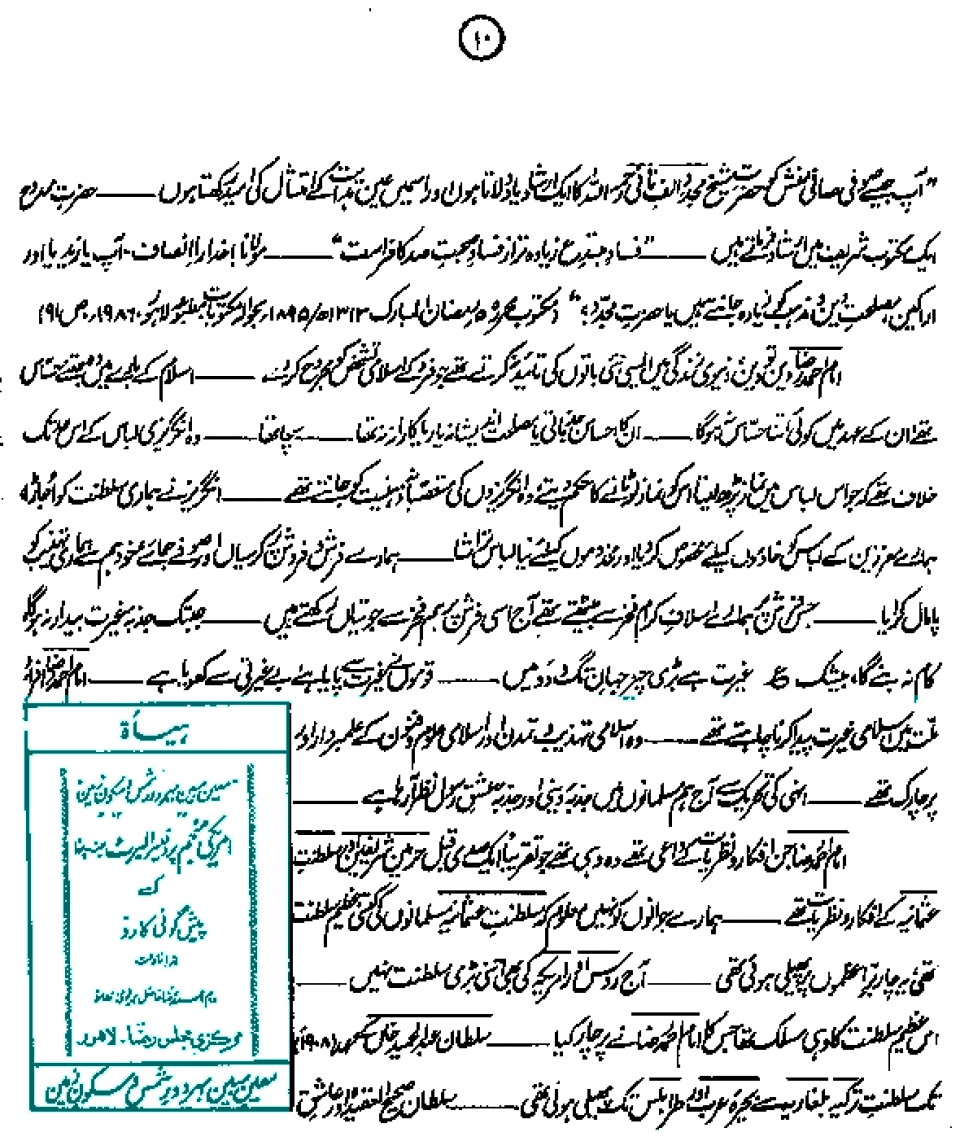 ۱۰
"آپ جیسے صافی منش کو حضرت شیخ مجدد الف ثانی رحمہ اللہ کا ایک ارشاد یاد دلاتا ہوں اور اسمیں عین ہدایت کے امتثال کی امید رکھتا ہوں ——— حضرت ممدوح
ایک مکتوب شریف میں ارشاد فرماتے ہیں ——— "فساد مبتدع زیادہ تر از فساد صحبت صد کافر است" ——— مولانا! خدارا! انصاف۔ آپ یا زید یا اور
اراکین، مصلحت دین و مذہب کو زیادہ جانتے ہیں یا حضرت مجدد؟" (مکتوب محررہ ۵ رمضان المبارک ۱۳۱۳ھ/۱۸۹۵ء، بحوالہ مکتوبات مطبوعہ لاہور، ۱۹۸۶ء، ص ۹۱)
امام احمد رضا دین تو دین، دنیوی زندگی میں ایسی نئی باتوں کی تائید نہ کرتے تھے جو فرد کے اسلامی تشخص کو مجروح کر دے ——— اسلام کے بارے میں وہ جتنے حساس
تھے ان کے عہد میں کوئی اتنا حساس نہ ہوگا ——— ان کا احساس جذباتی یا مصلحت اندیشانہ یا ریاکارانہ نہ تھا ——— سچا تھا ——— وہ انگریزی لباس کے اس حد تک
خلاف تھے کہ جو اس لباس میں نماز پڑھ لیتا اس کو نماز لوٹانے کا حکم دیتے، وہ انگریزوں کی متعصبانہ ذہنیت کو جانتے تھے ——— انگریز نے ہماری سلطنت کو اجاڑا،
ہمارے معززین کے لباس کو خادموں کیلئے مخصوص کر دیا اور مخدوموں کیلئے نیا لباس تراشا ——— ہمارے فرش و فروش کو کرسیاں اور صوفے جمائے خود ہم سے ہماری تہذیب کو
پامال کرایا ——— جس فرش پر ہمارے اسلاف کرام فخر سے بیٹھتے تھے آج اسی فرش پر ہم فخر سے جوتیاں رکھتے ہیں ——— جب تک جذبہ غیرت بیدار نہ ہوگا
کام نہ بنے گا، بیشک ع غیرت ہے بڑی چیز جہان تگ و دو میں ——— قوموں نے غیرت سے پایا ہے، بے غیرتی سے کھویا ہے ——— امام احمد رضا افراد
ملت میں اسلامی غیرت پیدا کرنا چاہتے تھے ——— وہ اسلامی تہذیب و تمدن اور اسلامی علوم و فنون کے علمبردار اور
پرچارک تھے ——— انہی کی تحریک سے آج ہم مسلمانوں میں جذبہ دینی اور جذبہ عشق رسول نظر آ رہا ہے ———
امام احمد رضا جن افکار و نظریات کے داعی تھے وہ وہی تھے جو تقریباً ایک صدی قبل حرمین شریفین اور سلطنت
عثمانیہ کے افکار و نظریات تھے ——— ہمارے جوانوں کو نہیں معلوم کہ سلطنت عثمانیہ مسلمانوں کی کتنی عظیم سلطنت
تھی، یہ چار براعظموں پر پھیلی ہوئی تھی ——— آج روس اور امریکہ کی بھی اتنی بڑی سلطنت نہیں ———
اس عظیم سلطنت کا وہی مسلک تھا جس کا امام احمد رضا نے پرچار کیا ——— سلطان عبدالحمید خاں کے عہد (۱۹۰۸ء)
تک سلطنت ترکیہ بلغاریہ سے بحیرہ عرب اور طرابلس تک پھیلی ہوئی تھی ——— سلطان صحیح العقیدہ اور عاشق
ہیئاۃ
معین مبین بہر دور شمس و سکون زمین
امریکی منجم پروفیسر البرٹ
کی
پیش گوئی کا رد
مرکزی مجلس رضا۔ لاہور
معین مبین بہر دور شمس و سکون زمین